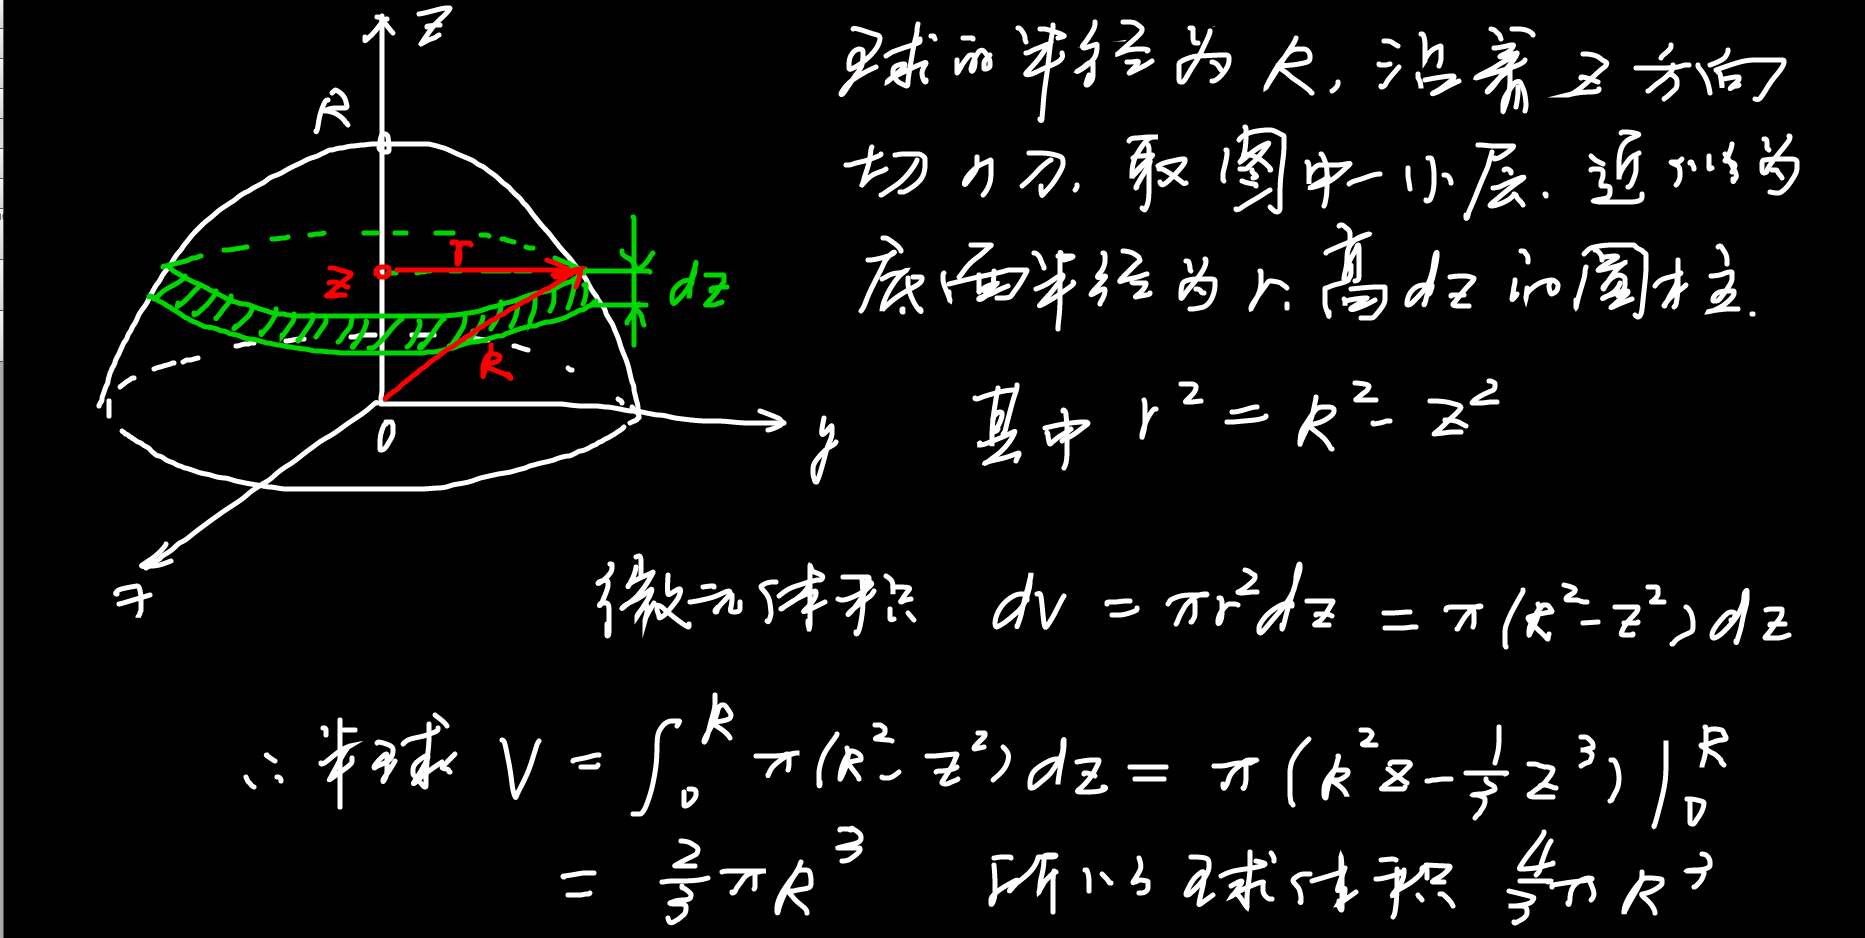 z
R
r
z
dz
R
0
y
x
球的半径为 R, 沿着 z 方向
切 n 刀, 取图中一小层. 近似为
底面半径为 r, 高 dz 的圆柱.
其中 r² = R² - z²
微元体积 dv = πr²dz = π(R²-z²)dz
∴ 半球 V = ∫₀ᴿ π(R²-z²)dz = π(R²z - 1/3 z³)|₀ᴿ
= 2/3 πR³ 所以球体积 4/3 πR³